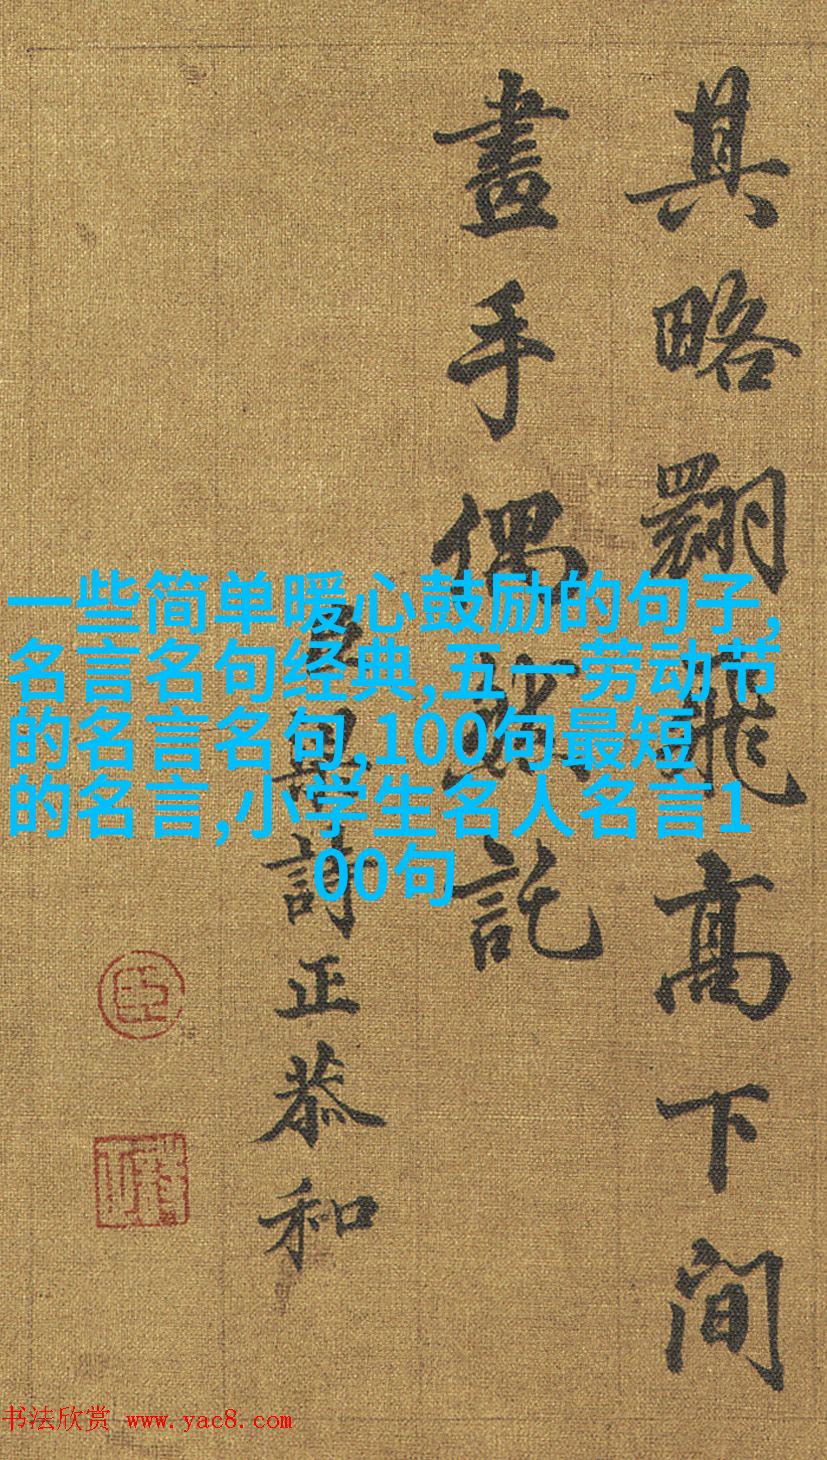 其略翾飛高下間
畫手偶託
臣詩正恭和
臣
一些简单暖心鼓励的句子,
名言名句经典,五一劳动节
的名言名句,100句最短
的名言,小学生名人名言1
00句
书法欣赏 www.yac8.com